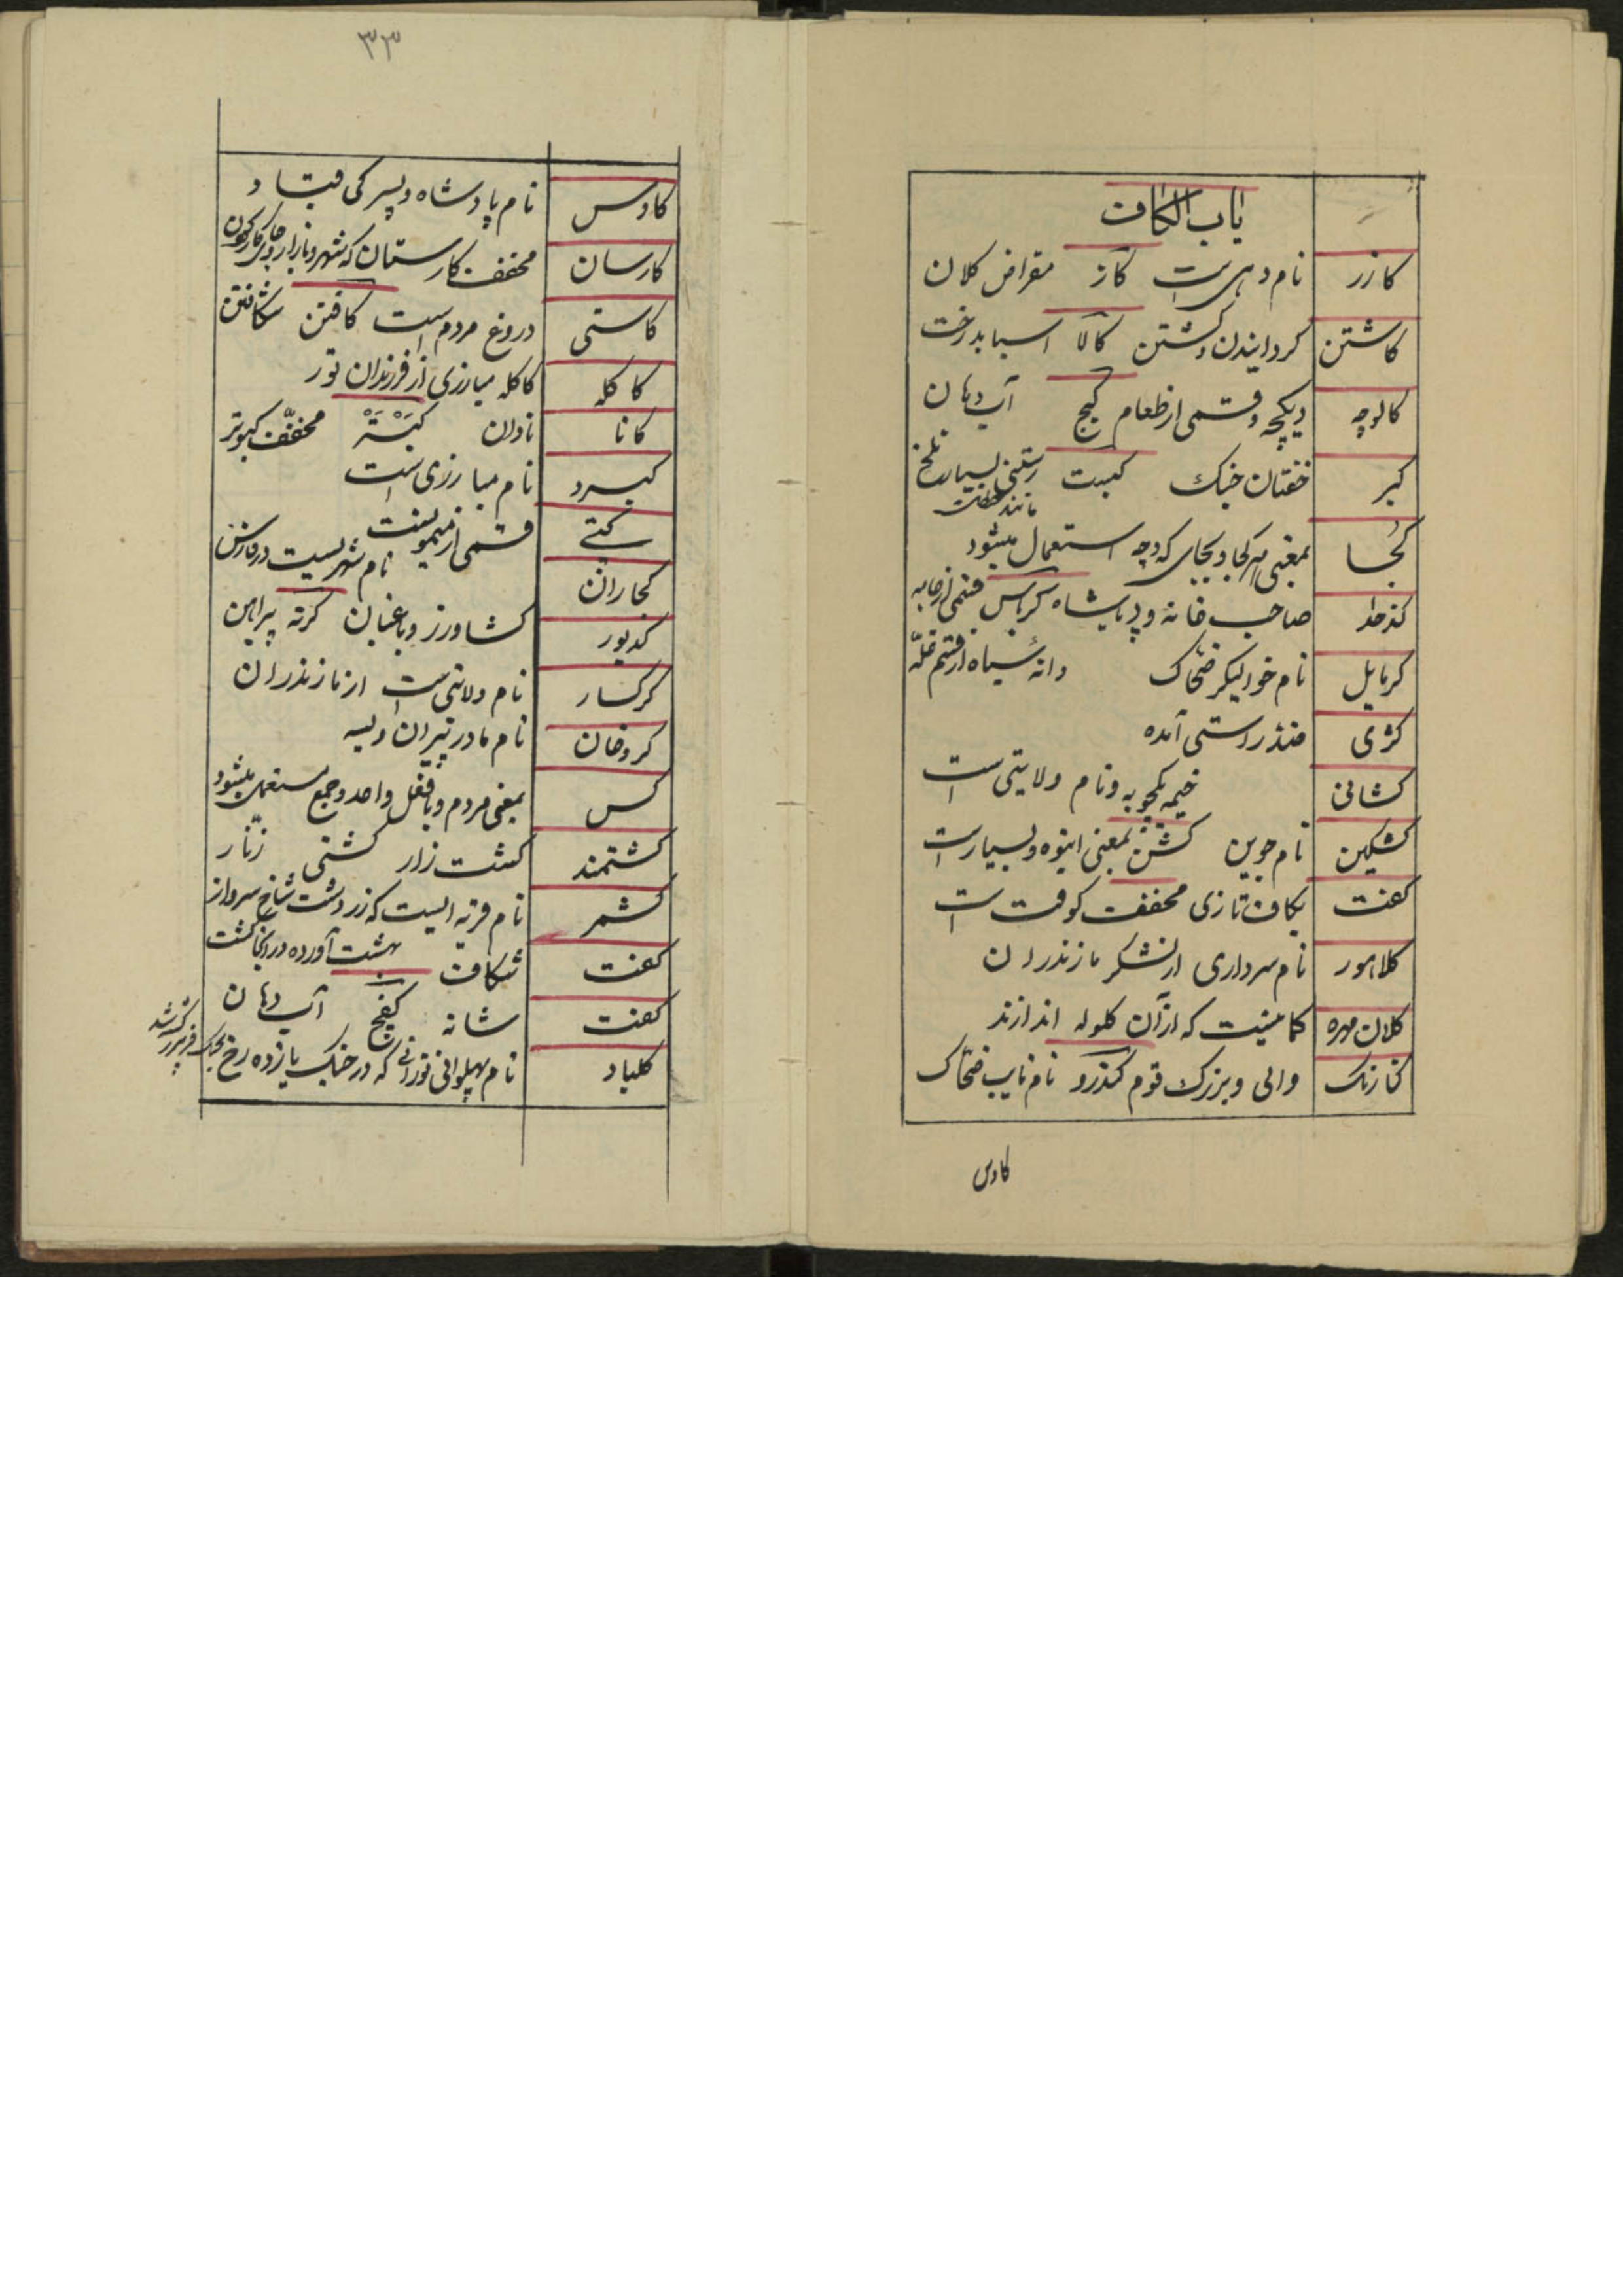 باب الکاف
کازر نام دهی است کاز مقراض کلان
کاشتن گردانیدن و گشتن کالا اسباب و رخت
کالوچه دیکچه و قسمی از طعام کیج آب دهان
کبر خفتان جنگ کبست رستنی بسیار تلخ
مانند
کجا بمعنی هر کجا و بجای که و چه استعمال میشود
کدخدا صاحب خانه و پادشاه کرباس قسمی از جامه
کرمایل نام خوالیگر ضحاک دانهٔ سیاه از قسم غله
کژی ضد راستی آمده
کشانی خیمه یکچوبه و نام ولایتی است
کشکین نام جوین کشن بمعنی انبوه و بسیار است
کفت بکاف تازی مخفف کوفت است
کلاهور نام سرداری از لشکر مازندران
کلان مهره کمانیست که از آن کلوله اندازند
کنارنک والی و بزرک قوم کندرو نام نایب ضحاک
کاوس
۳۳
کاوس نام پادشاه و پسر کی قباد
کارسان مخفف کارستان که شهر و بازار و جای کار کردن
کاستی دروغ مردم است کافتن شکافتن
کاکله کاکله مبارزی از فرزندان تور
کانا نادان کبتر مخفّف کبوتر
کبرد نام مبارزی است
کپی قسمی از میمونست
کجاران نام شهریست در فارس
کدیور کشاورز و باغبان کرته پیراهن
کرکسار نام ولایتی است از مازندران
کروخان نام مادر پیران ویسه
کس بمعنی مردم و با فعل واحد و جمع مستعمل میشود
کشتمند کشت زار کشتی زنّار
کشمر نام قریه ایست که زردشت شاخ سرو از
بهشت آورده در آنجا کشت
کفت شکافت
کفت شانه کفج آب دهان
کلباد نام پهلوانی تورانی که در جنک یازده رخ بجنک فریبرز کشته شد